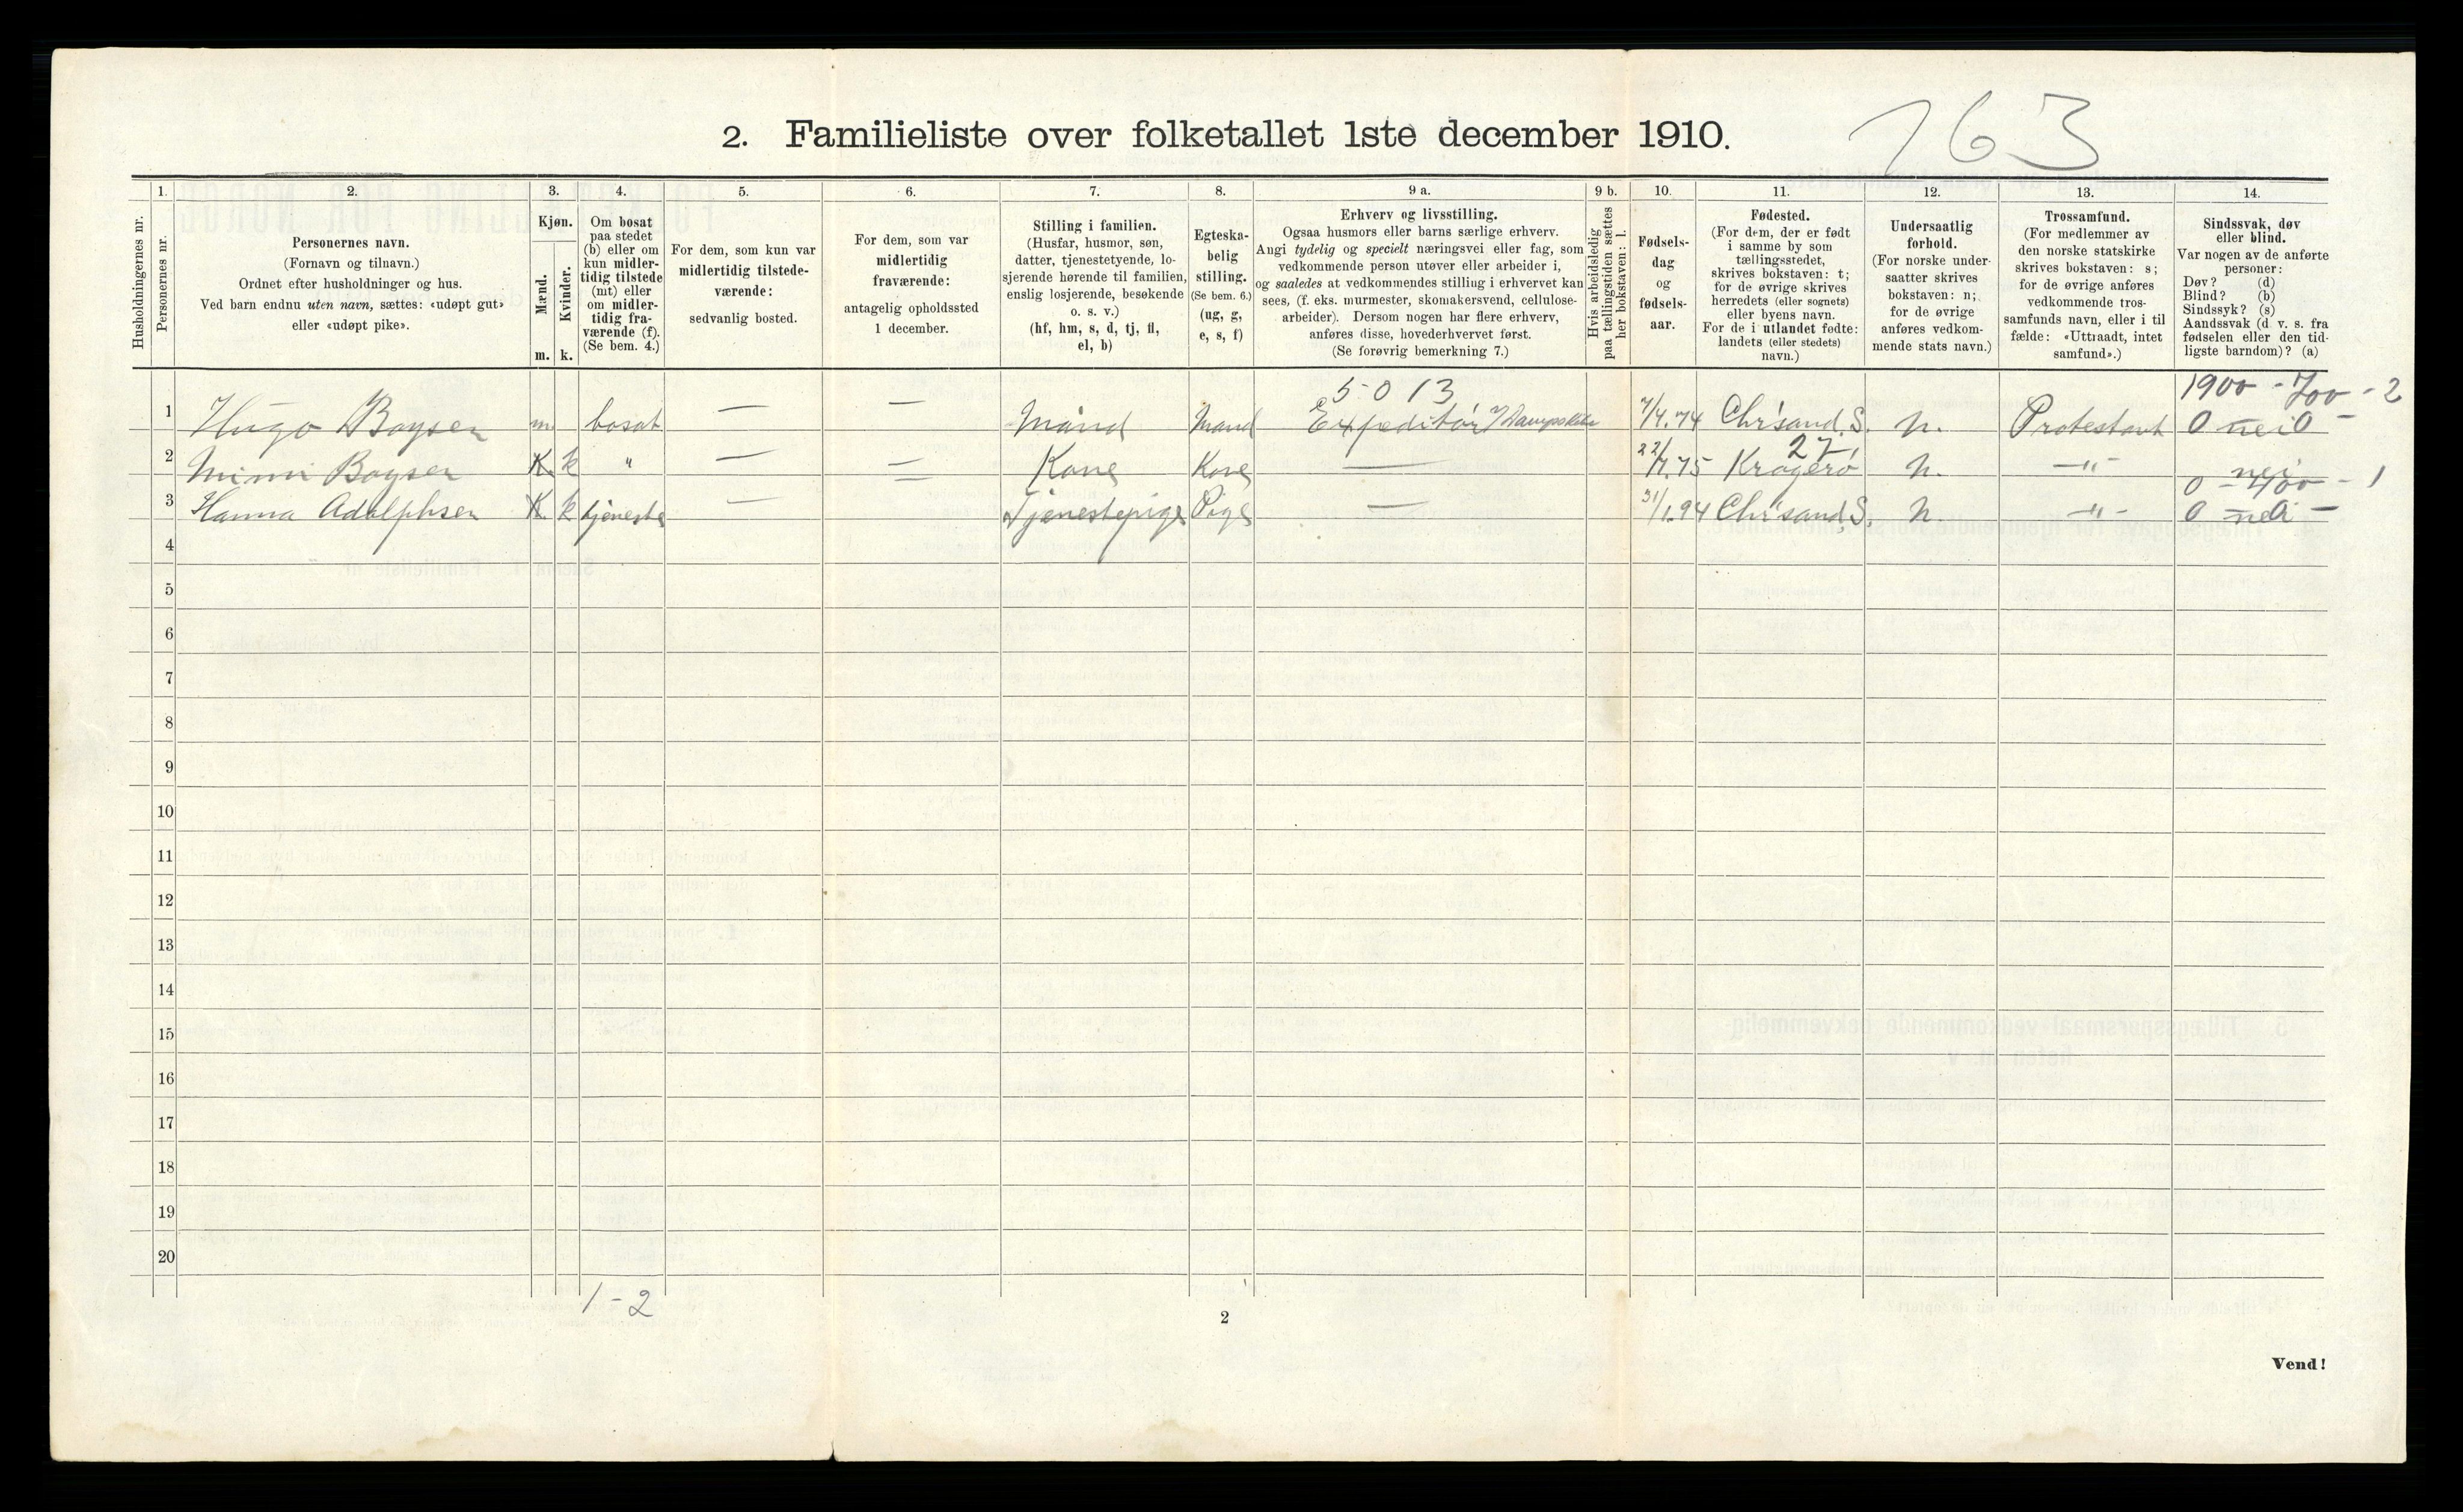 163
2. Familieliste over folketallet 1ste december 1910.
1. 2. 3. 4. 5. 6. 7. 8. 9 a. 9 b. 10. 11. 12. 13. 14.
Husholdningernes nr.
Personernes nr.
Personernes navn.
(Fornavn og tilnavn.)
Ordnet efter husholdninger og hus.
Ved barn endnu uten navn, sættes: «udøpt gut»
eller «udøpt pike».
Kjøn.
Mænd.
Kvinder.
m. k.
Om bosat
paa stedet
(b) eller om
kun midler-
tidig tilstede
(mt) eller
om midler-
tidig fra-
værende (f).
(Se bem. 4.)
For dem, som kun var
midlertidig tilstede-
værende:
sedvanlig bosted.
For dem, som var
midlertidig
fraværende:
antagelig opholdssted
1 december.
Stilling i familien.
(Husfar, husmor, søn,
datter, tjenestetyende, lo-
sjerende hørende til familien,
enslig losjerende, besøkende
o. s. v.)
(hf, hm, s, d, tj, fl,
el, b)
Egteska-
belig
stilling.
(Se bem. 6.)
(ug, g,
e, s, f)
Erhverv og livsstilling.
Ogsaa husmors eller barns særlige erhverv.
Angi tydelig og specielt næringsvei eller fag, som
vedkommende person utøver eller arbeider i,
og saaledes at vedkommendes stilling i erhvervet kan
sees, (f. eks. murmester, skomakersvend, cellulose-
arbeider). Dersom nogen har flere erhverv,
anføres disse, hovederhvervet først.
(Se forøvrig bemerkning 7.)
Hvis arbeidsledig
paa tællingstiden sættes
her bokstaven: l.
Fødsels-
dag
og
fødsels-
aar.
Fødested.
(For dem, der er født
i samme by som
tællingsstedet,
skrives bokstaven: t;
for de øvrige skrives
herredets (eller sognets)
eller byens navn.
For de i utlandet fødte:
landets (eller stedets)
navn.)
Undersaatlig
forhold.
(For norske under-
saatter skrives
bokstaven: n;
for de øvrige
anføres vedkom-
mende stats navn.)
Trossamfund.
(For medlemmer av
den norske statskirke
skrives bokstaven: s;
for de øvrige anføres
vedkommende tros-
samfunds navn, eller i til
fælde: «Uttraadt, intet
samfund».)
Sindssvak, døv
eller blind.
Var nogen av de anførte
personer:
Døv? (d)
Blind? (b)
Sindssyk? (s)
Aandssvak (d. v. s. fra
fødselen eller den tid-
ligste barndom)? (a)
5013 1900 - 700 - 2
1 Hugo Boysen m. bosat — — Mand Mand Expeditør 7/4.74 Chr'sand. S. n. Protestant 0 nei 0 -
27
2 Mimi Boysen K. k " — — Kone Kone — 22/7.75 Kragerø n. —"— nei
0 - 400 - 1
3 Hanna Adolphsen K k tjeneste — Tjenestepige Pige — 31/1.94 Chr'sand. S. n. —"— 0 nei -
4
5
6
7
8
9
10
11
12
13
14
15
16
17
18
19
20
1 - 2
2
Vend!